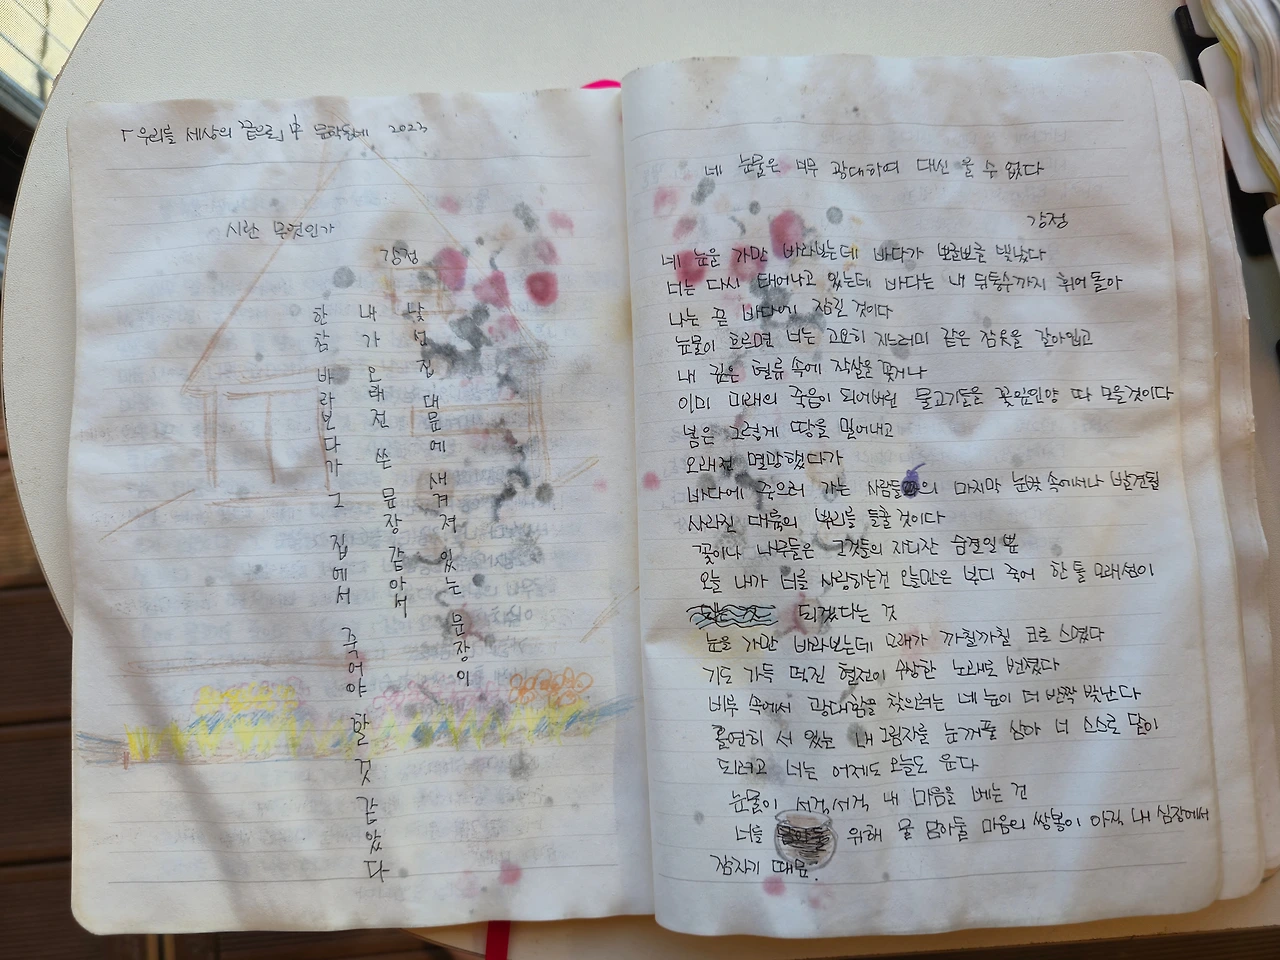 「우리를 세상의 끝으로」 中 문학동네 2023
시란 무엇인가
강정
낯선 집 대문에 새겨져 있는 문장이
내가 오래전 쓴 묘비 같아서
한참 바라보다가 그 집에서 죽어야 할 것 같았다
네 눈물은 너무 광대하여 대신 울 수 없다
강정
네 눈을 가만 바라보는데 바다가 보글보글 빛났다
너는 다시 태어나고 있는데 바다는 내 뒤통수까지 휘어 돌아
나는 곧 바다에 잠길 것이다
눈물이 흐르면 너는 고요히 지느러미 같은 잠옷을 갈아입고
내 깊은 혈류 속에 작살을 꽂거나
이미 미래의 죽음이 되어버린 물고기들은 꽃잎인양 따 모을것이다
봄은 그렇게 땅을 밀어내고
오래전 멸망했다가
바다에 죽으러 가는 사람들의 마지막 눈빛 속에서나 발견될
사라진 대륙의 뿌리를 들출 것이다
꽃이나 나무들은 그것들의 자디잔 숨결일 뿐
오늘 내가 너를 사랑하는건 오늘만은 부디 죽어 한 톨 모래섬이
되겠다는 것
눈을 가만 바라보는데 모래가 까칠까칠 코로 스몄다
기도 가득 덕진 혈전이 수상한 노래로 번졌다
비부 속에서 광대함을 찾으려는 네 눈이 더 반짝 빛난다
홀연히 서 있는 내 그림자를 눈꺼풀 삼아 너 스스로 달이
되려고 너는 어제도 오늘도 운다
눈물이 서걱서걱 내 마음을 베는 건
너를 위해 울 담아둘 마음의 쌍봉이 아직 내 심장에서
잠자기 때문.